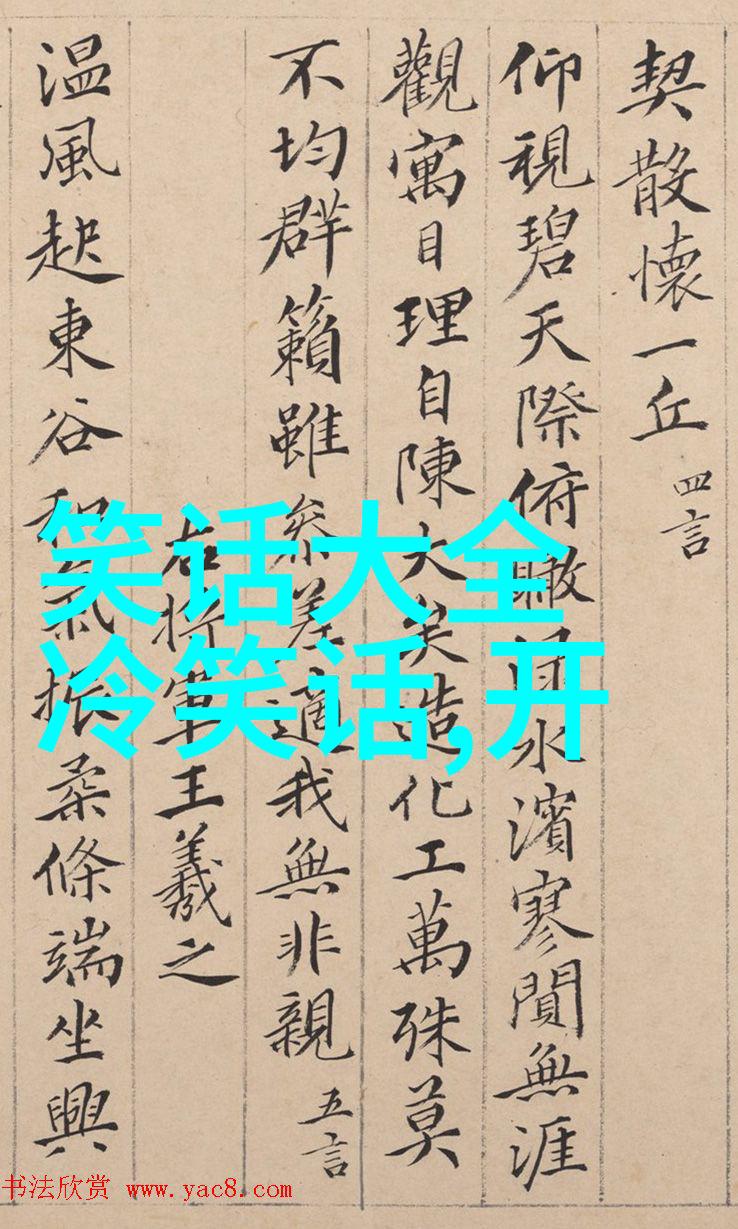 契散懷一丘 四言
仰視碧天際俯瞰水濱寥閴無涯
觀寓目理自陳大矣造化工萬殊莫
不均群籟雖叅差適我無非親 五言
右将軍王羲之
温風起東谷和氣振柔條端坐興
笑话大全
冷笑话,开
书法欣赏 www.yac8.com